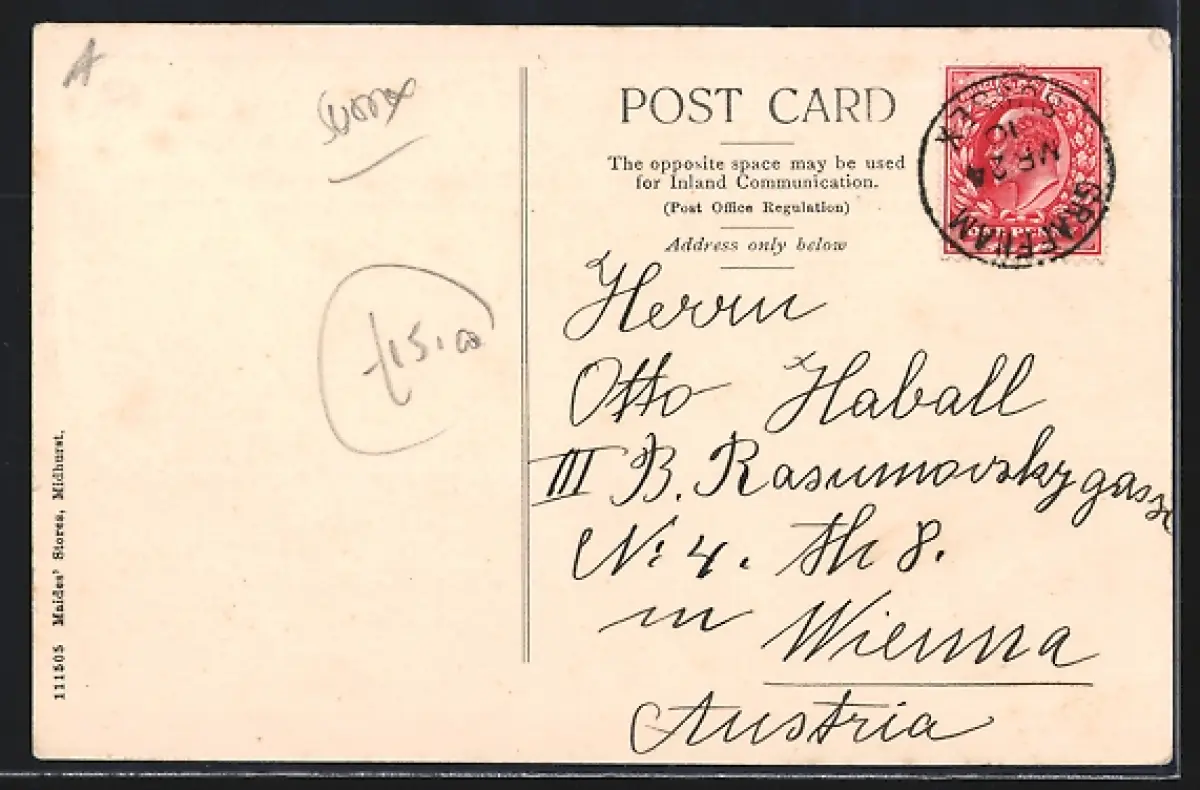 A
Sussex
£15.00
111505 Maides' Stores, Midhurst.
POST CARD
The opposite space may be used
for Inland Communication.
(Post Office Regulation)
Address only below
GRAFFHAM
MR 24
10
SUSSEX
Herrn
Otto Haball
III B. Rasumovskygasse
No: 4. Th 8.
in Wienna
Austria